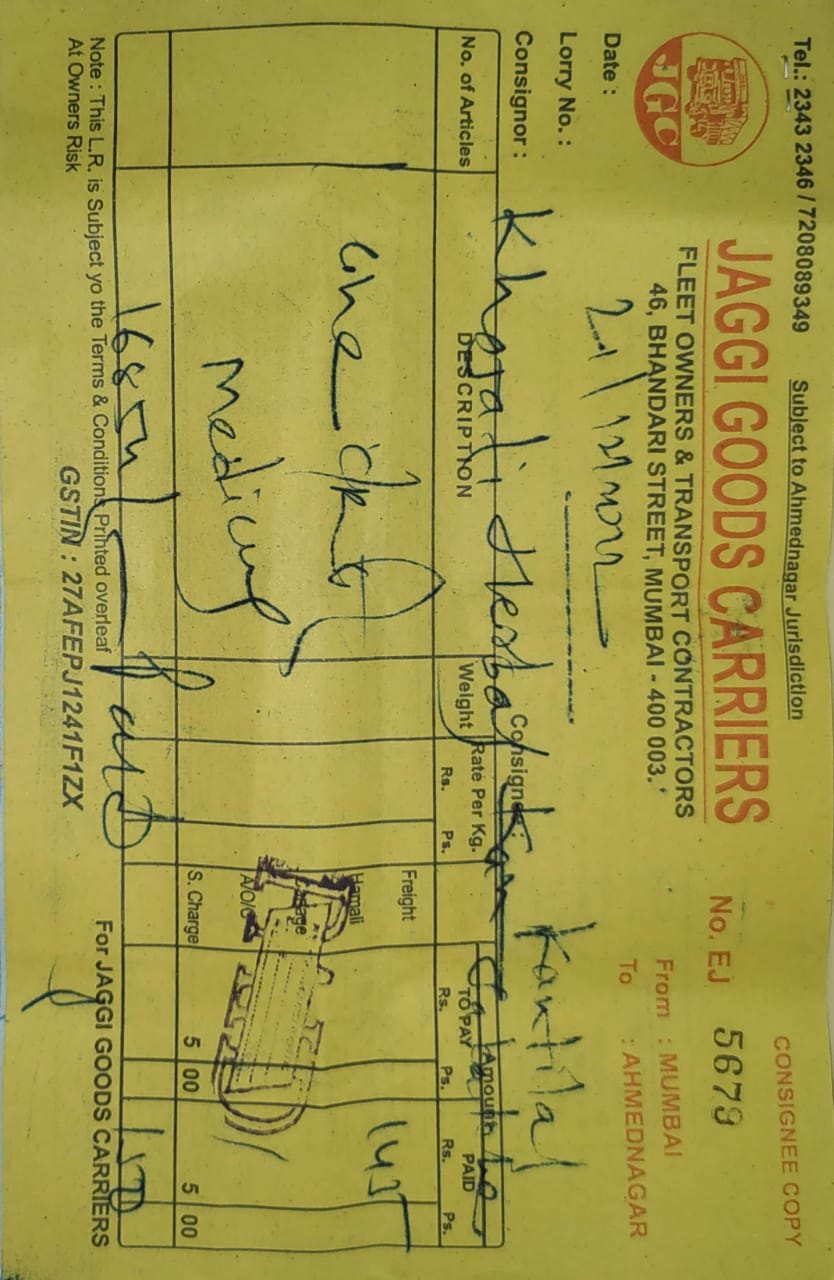 Tel.: 2343 2346 / 7208089349 Subject to Ahmednagar Jurisdiction
CONSIGNEE COPY
JGC
JAGGI GOODS CARRIERS
FLEET OWNERS & TRANSPORT CONTRACTORS
46, BHANDARI STREET, MUMBAI - 400 003.
No. EJ 5679
From : MUMBAI
To : AHMEDNAGAR
Date :
Lorry No. :
Consignor : Consignee : Kantilal
No. of Articles DESCRIPTION Weight Rate Per Kg. Rs. Ps. Amount TO PAY Rs. Ps. PAID Rs. Ps.
One Freight 145
Hamali
Medicine A/O/C
S. Charge 5 00 5 00
Paid 150
Note : This L.R. is Subject yo the Terms & Conditions Printed overleaf
At Owners Risk
GSTIN : 27AFEPJ1241F1ZX
For JAGGI GOODS CARRIERS